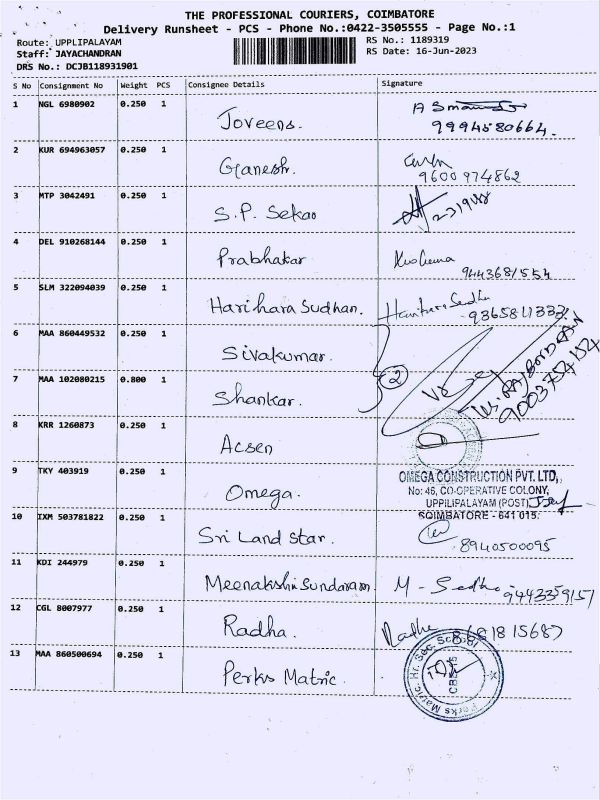 THE PROFESSIONAL COURIERS, COIMBATORE
Delivery Runsheet - PCS - Phone No.:0422-3505555 - Page No.:1
Route: UPPLIPALAYAM RS No.: 1189319
Staff: JAYACHANDRAN RS Date: 16-Jun-2023
DRS No.: DCJB118931901
S No Consignment No Weight PCS Consignee Details Signature
1 NGL 6980902 0.250 1 Joveens.
9994580664.
2 KUR 694963057 0.250 1 Ganesh.
9600974862
3 MTP 3042491 0.250 1 S.P. Sekar
4 DEL 910268144 0.250 1 Prabhakar
9443681554
5 SLM 322094039 0.250 1 Harihara Sudhan.
9365811333
6 MAA 860449532 0.250 1 Sivakumar.
2
7 MAA 102080215 0.800 1 Shankar.
9003754154
8 KRR 1260873 0.250 1 Acsen
9 TKY 403919 0.250 1 Omega.
OMEGA CONSTRUCTION PVT. LTD,
No: 46, CO-OPERATIVE COLONY,
UPPILIPALAYAM (POST)
COIMBATORE - 641 015.
10 IXM 503781822 0.250 1 Sri Land Star.
8940500095
11 KDI 244979 0.250 1 Meenakshi Sundaram M - Sedho
9443359157
12 CGL 8007977 0.250 1 Radha. Radhe
13 MAA 860500694 0.250 1 Perks Matric
Perks Matric. Hr. Sec. School